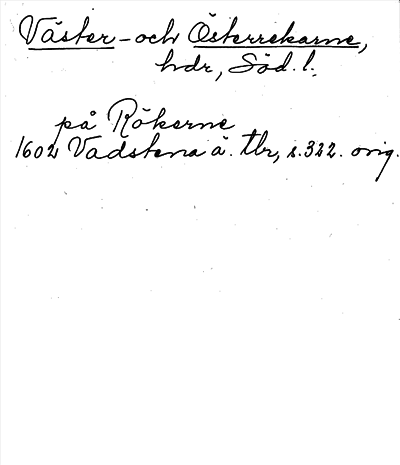 Väster- och Österrekarne,
hdr, Söd. l.,
på Rökerne
1602 Vadstena ä. tlr, s. 322. orig.